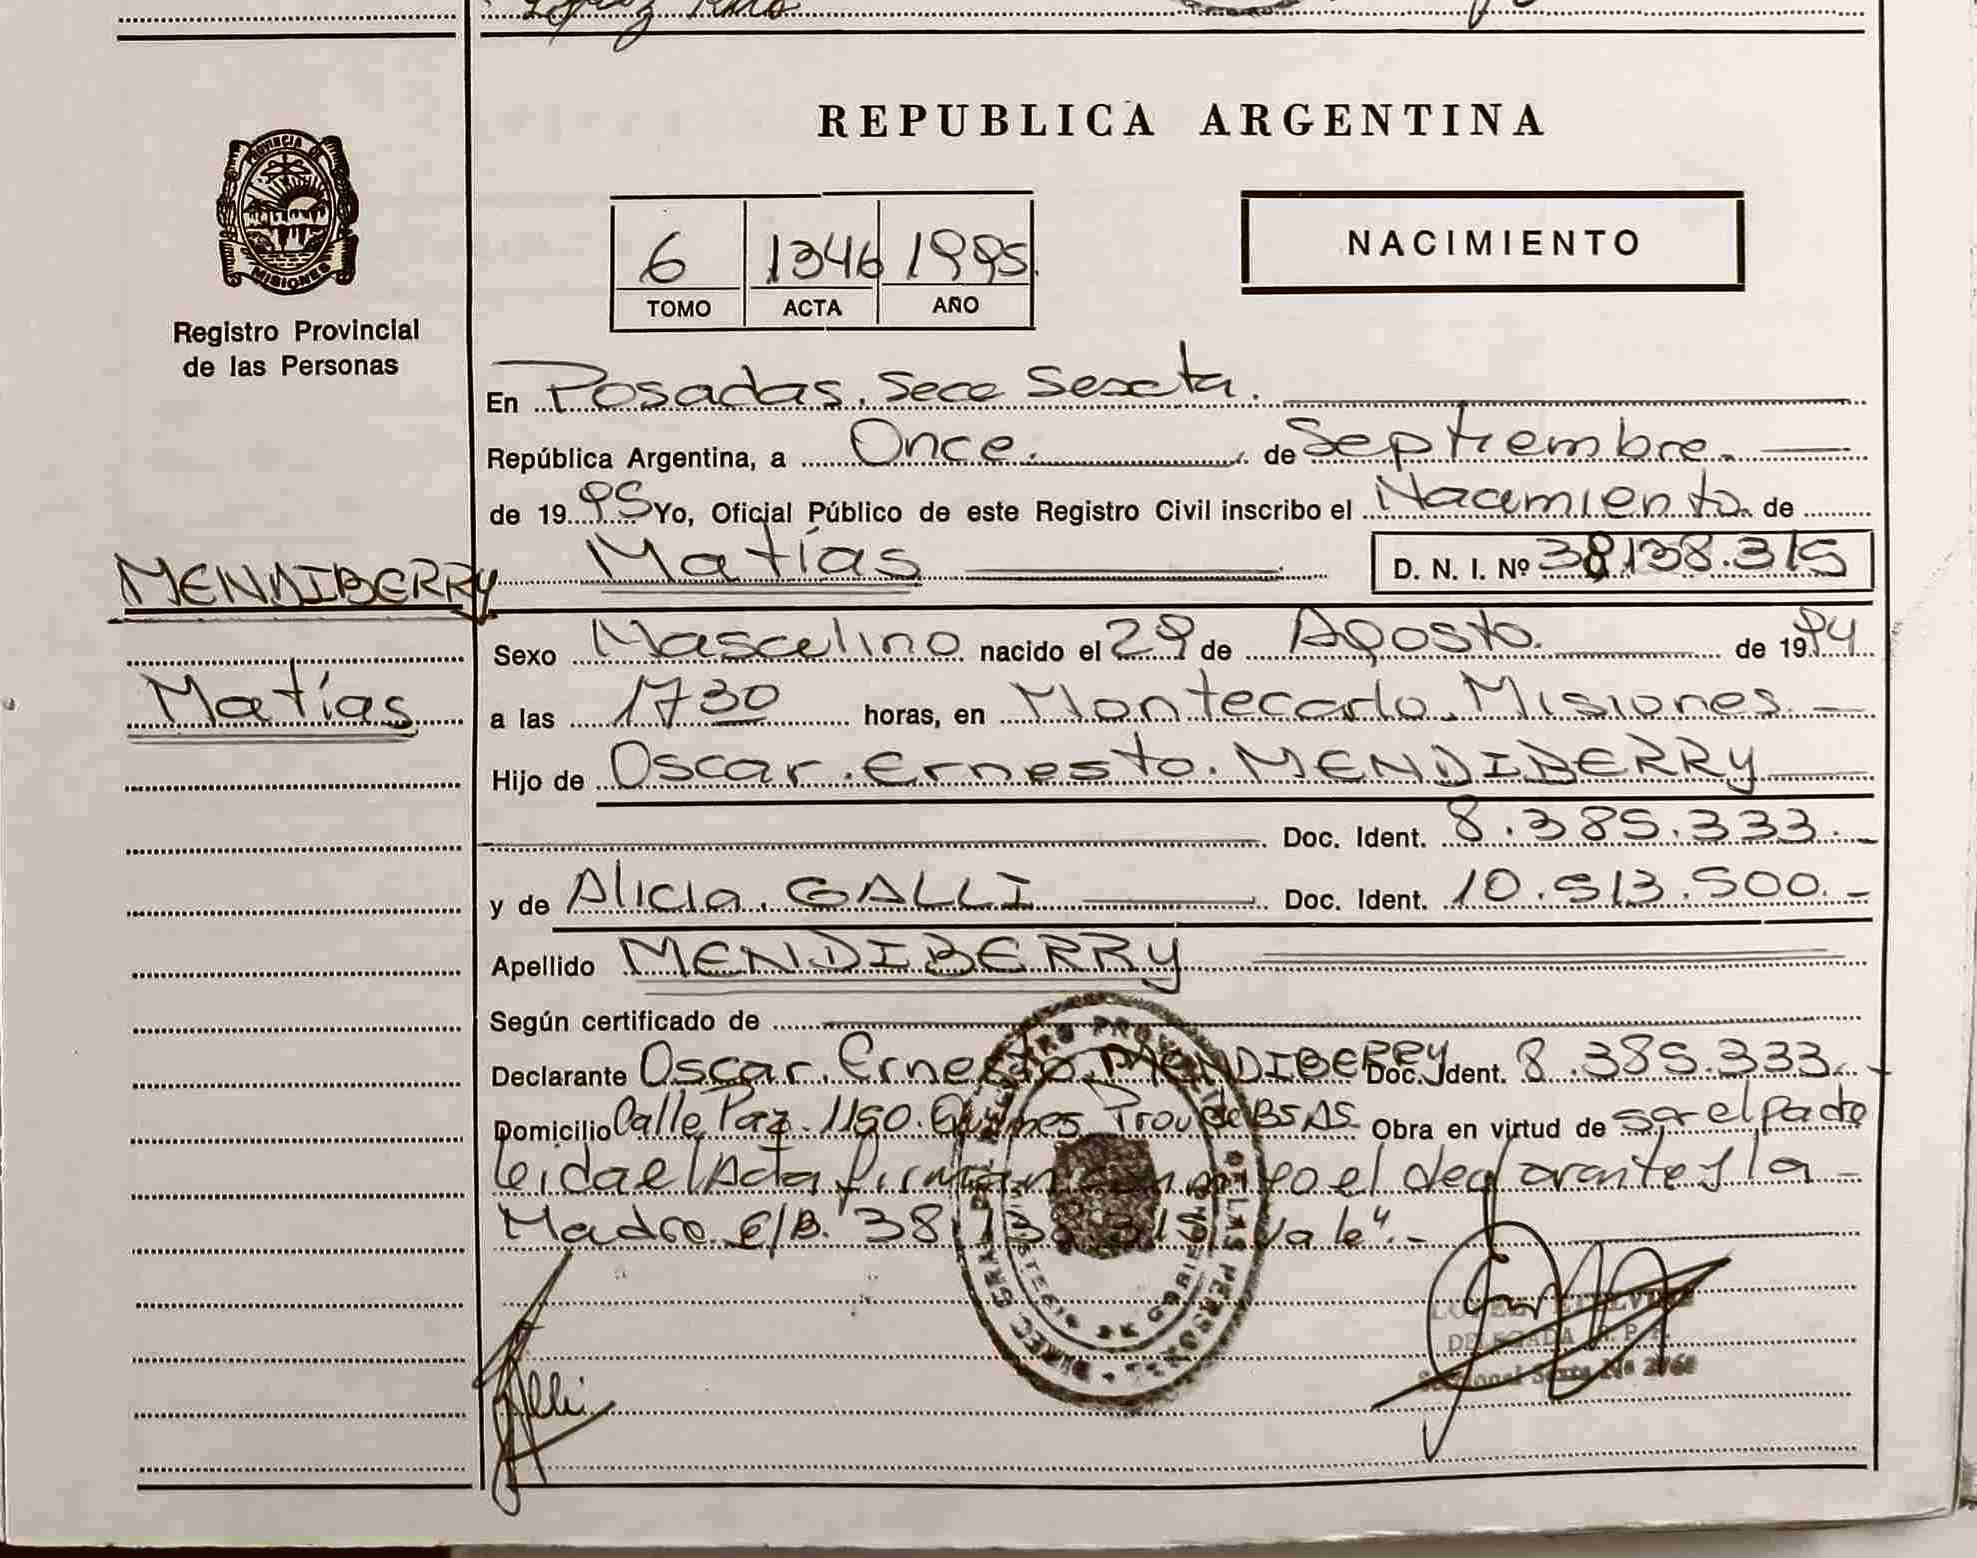 López
REPUBLICA ARGENTINA
PROVINCIA DE MISIONES
Registro Provincial
de las Personas
6 1346 1995
TOMO ACTA AÑO
NACIMIENTO
En Posadas. Secc Sexta.
República Argentina, a Once. de Septiembre.
de 1995 Yo, Oficial Público de este Registro Civil inscribo el Nacimiento de
MENDIBERRY Matías D. N. I. Nº 38.138.315
Sexo Masculino nacido el 29 de Agosto. de 1994
Matías a las 1730 horas, en Montecarlo. Misiones.
Hijo de Oscar. Ernesto. MENDIBERRY
Doc. Ident. 8.385.333.
y de Alicia. GALLI Doc. Ident. 10.513.500.
Apellido MENDIBERRY
Según certificado de
Declarante Oscar. Ernesto. MENDIBERRY Doc. Ident. 8.385.333.
Domicilio Calle Paz. 1150. Quilmes Prov de BS AS. Obra en virtud de ser el padre
leida el Acta firman conmigo el declarante y la
Madre. E/B. "38.138.315 Vale".
DELEGADA R. P. P.
Seccional Sexta Nº
Galli